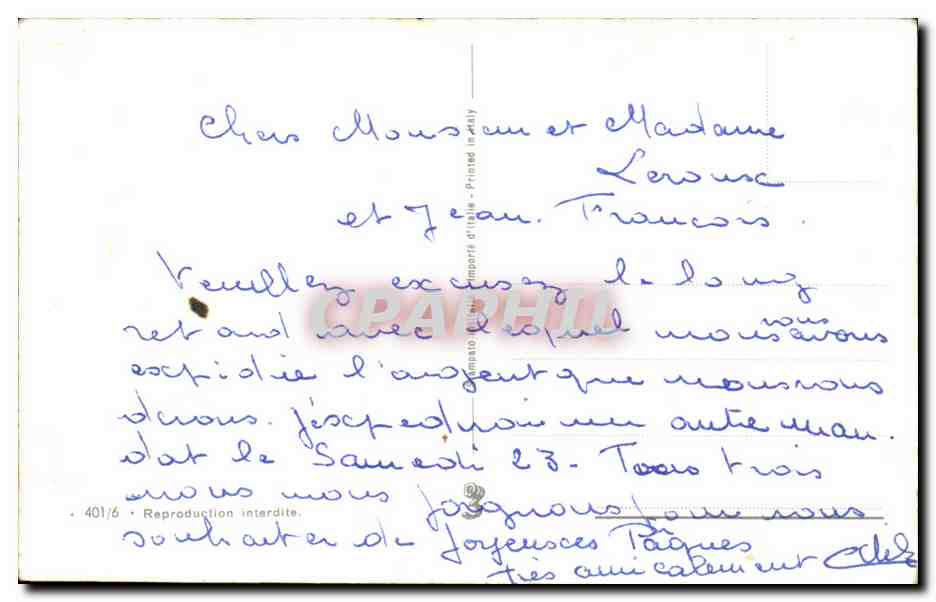 Chers Monsieur et Madame
Leroux
et Jean-François.
Veuillez excusez le long
retard avec lequel nous vous avons
expidié l'argent que nous vous
devons. J'expedirai un autre man.
dat le Samedi 23 - Tous trois
nous nous joignons pour vous
souhaiter de Joyeuses Pâques
très amicalement
401/6 • Reproduction interdite.
Stampato in Italia - Importé d'Italie - Printed in Italy
CPAPHIL
3